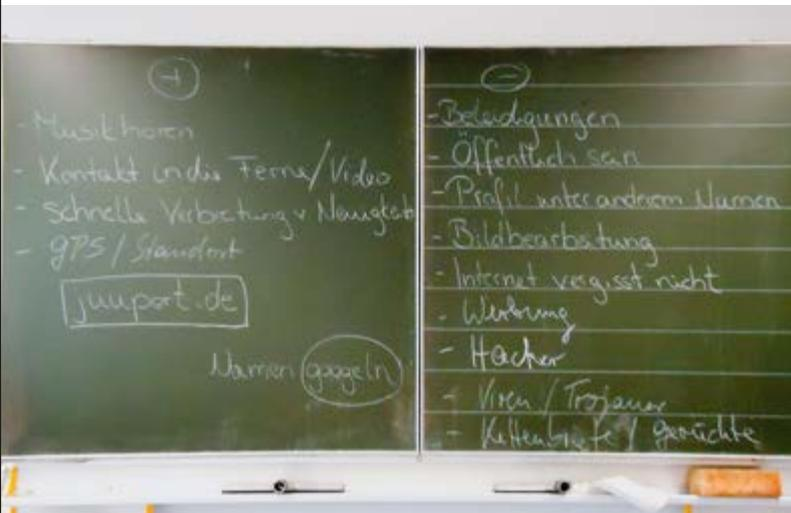 +
- Musik hören
- Kontakt in die Ferne/Video
- Schnelle Verbreitung v Neuigkeit
- GPS / Standort
juuport.de
Namen googeln
-
- Beleidigungen
- Öffentlich sein
- Profil unter anderem Namen
- Bildbearbeitung
- Internet vergisst nicht
- Werbung
- Hacker
- Viren / Trojaner
- Kettenbriefe / Gerüchte